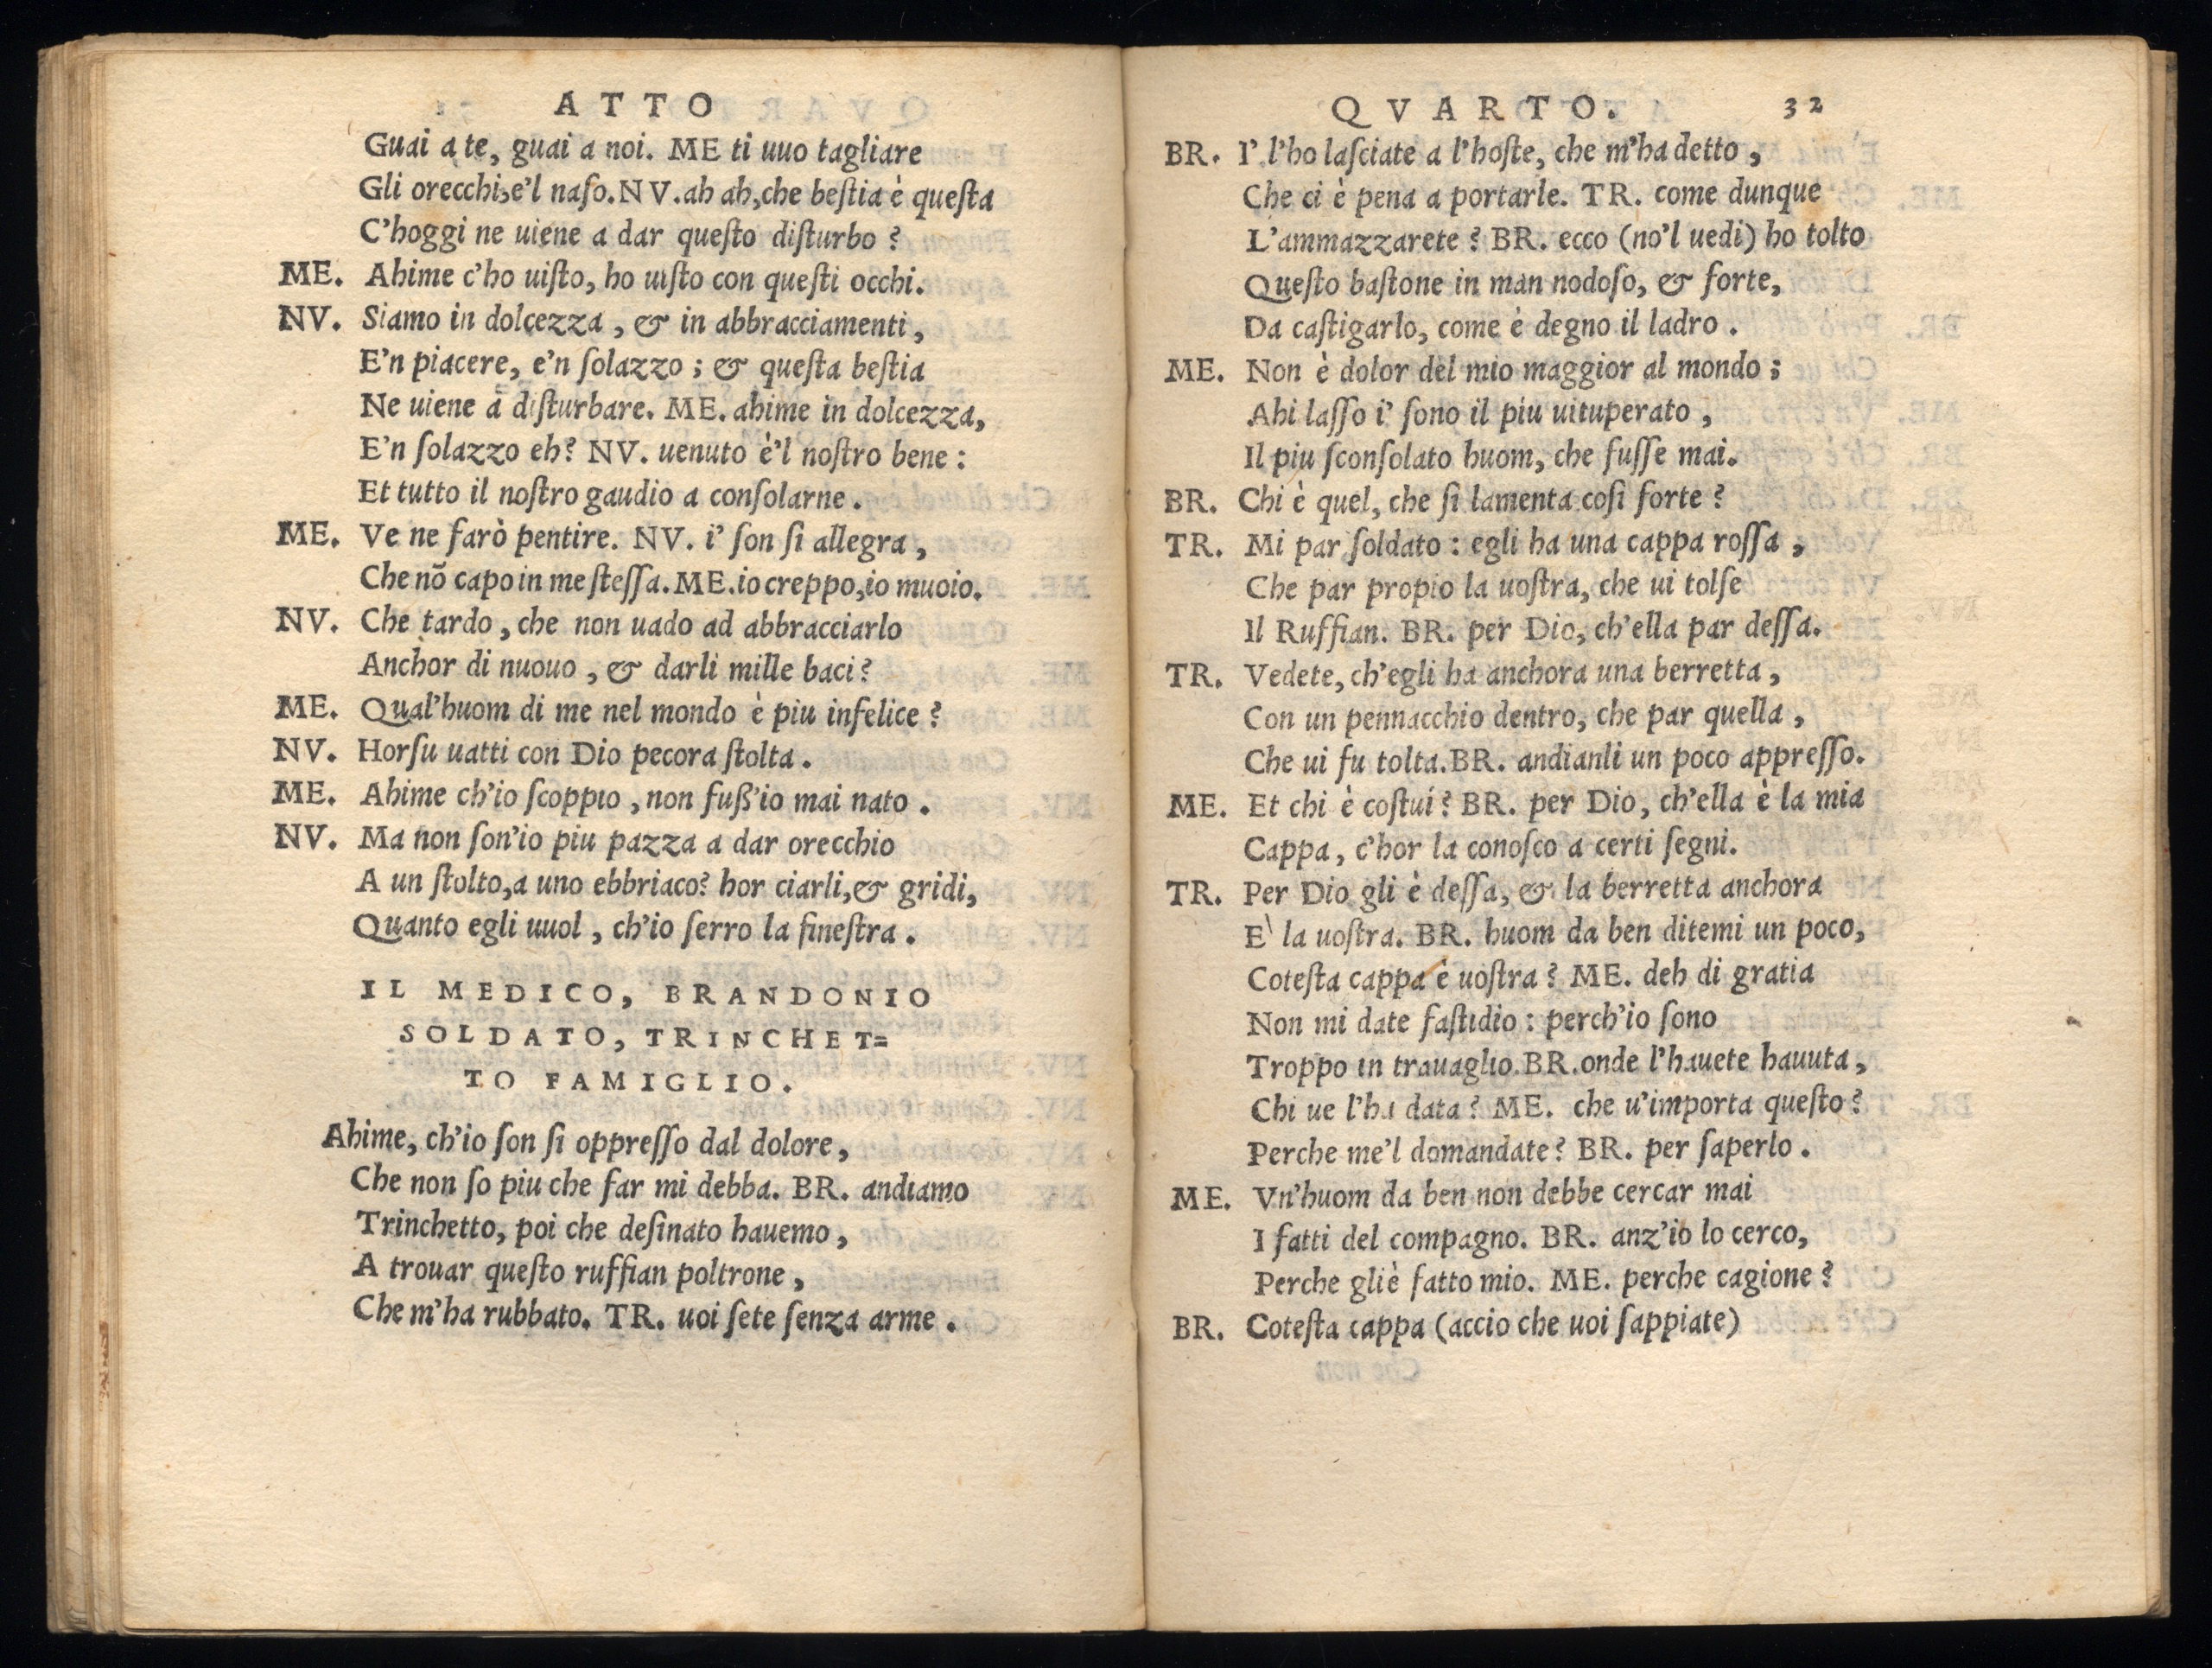 ATTO
Guai a te, guai a noi. ME ti uuo tagliare
Gli orecchi,e'l naſo.NV.ah ah,che beſtia è queſta
C'hoggi ne uiene a dar queſto diſturbo ?
ME. Ahime c'ho uiſto, ho uiſto con queſti occhi.
NV. Siamo in dolcezza , & in abbracciamenti ,
E'n piacere, e'n ſolazzo ; & queſta beſtia
Ne uiene a diſturbare. ME. ahime in dolcezza,
E'n ſolazzo eh? NV. uenuto è'l noſtro bene :
Et tutto il noſtro gaudio a conſolarne .
ME. Ve ne farò pentire. NV. i' ſon ſi allegra ,
Che nõ capo in me ſteſſa.ME.io creppo,io muoio.
NV. Che tardo , che non uado ad abbracciarlo
Anchor di nuouo , & darli mille baci ?
ME. Qual'huom di me nel mondo è piu infelice ?
NV. Horſu uatti con Dio pecora ſtolta .
ME. Ahime ch'io ſcoppio , non fuß'io mai nato .
NV. Ma non ſon'io piu pazza a dar orecchio
A un ſtolto,a uno ebbriaco? hor ciarli,& gridi,
Quanto egli uuol , ch'io ſerro la fineſtra .
IL MEDICO, BRANDONIO
SOLDATO, TRINCHET=
TO FAMIGLIO.
Ahime, ch'io ſon ſi oppreſſo dal dolore ,
Che non ſo piu che far mi debba. BR. andiamo
Trinchetto, poi che deſinato hauemo ,
A trouar queſto ruffian poltrone ,
Che m'ha rubbato. TR. uoi ſete ſenza arme .
QVARTO. 32
BR. I' l'ho laſciate a l'hoſte, che m'ha detto ,
Che ci è pena a portarle. TR. come dunque
L'ammazzarete ? BR. ecco (no'l uedi) ho tolto
Queſto baſtone in man nodoſo, & forte,
Da caſtigarlo, come è degno il ladro .
ME. Non è dolor del mio maggior al mondo ;
Ahi laſſo i' ſono il piu uituperato ,
Il piu ſconſolato huom, che fuſſe mai.
BR. Chi è quel, che ſi lamenta coſi forte ?
TR. Mi par ſoldato : egli ha una cappa roſſa ,
Che par propio la uoſtra, che ui tolſe
Il Ruffian. BR. per Dio, ch'ella par deſſa.
TR. Vedete, ch'egli ha anchora una berretta ,
Con un pennacchio dentro, che par quella ,
Che ui fu tolta.BR. andianli un poco appreſſo.
ME. Et chi è coſtui ? BR. per Dio, ch'ella è la mia
Cappa, c'hor la conoſco a certi ſegni.
TR. Per Dio gli è deſſa, & la berretta anchora
E' la uoſtra. BR. huom da ben ditemi un poco,
Coteſta cappa è uoſtra ? ME. deh di gratia
Non mi date faſtidio : perch'io ſono
Troppo in trauaglio.BR.onde l'hauete hauuta ,
Chi ue l'ha data ? ME. che u'importa queſto ?
Perche me'l domandate ? BR. per ſaperlo .
ME. Vn'huom da ben non debbe cercar mai
I fatti del compagno. BR. anz'io lo cerco,
Perche gliè fatto mio. ME. perche cagione ?
BR. Coteſta cappa (accio che uoi ſappiate)